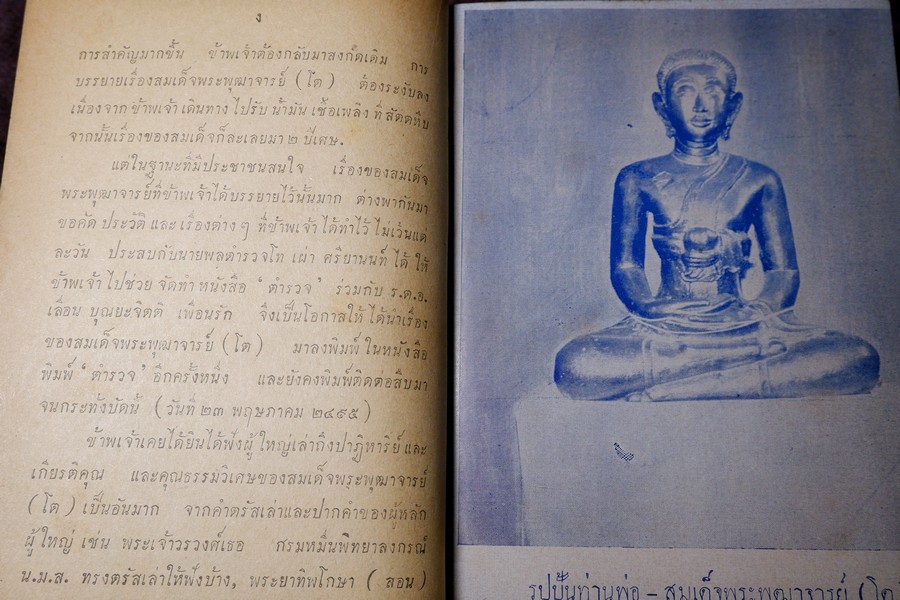 ง
การสำคัญมากขึ้น ข้าพเจ้าต้องกลับมาสงกัดเดิม การ
บรรยายเรื่องสมเด็จพระพุฒาจารย์ (โต) ต้องระงับลง
เนื่องจากข้าพเจ้าเดินทางไปรับน้ำมันเชื้อเพลิงที่สัตตหีบ
จากนั้นเรื่องของสมเด็จก็ละเลยมา ๒ ปีเศษ.
แต่ในฐานะที่มีประชาชนสนใจ เรื่องของสมเด็จ
พระพุฒาจารย์ที่ข้าพเจ้าได้บรรยายไว้นั้นมาก ต่างพากันมา
ขอคัดประวัติและเรื่องต่างๆ ที่ข้าพเจ้าได้ทำไว้ไม่เว้นแต่
ละวัน ประสบกับนายพลตำรวจโท เผ่า ศรียานนท์ ได้ให้
ข้าพเจ้าไปช่วยจัดทำหนังสือ ‘ตำรวจ’ รวมกับ ร.ต.อ.
เลื่อน บุณยะจิตติ เพื่อนรัก จึงเป็นโอกาสให้ได้นำเรื่อง
ของสมเด็จพระพุฒาจารย์ (โต) มาลงพิมพ์ในหนังสือ
พิมพ์ ‘ตำรวจ’ อีกครั้งหนึ่ง และยังคงพิมพ์ติดต่อสืบมา
จนกระทั่งบัดนี้ (วันที่ ๒๓ พฤษภาคม ๒๔๙๕)
ข้าพเจ้าเคยได้ยินได้ฟังผู้ใหญ่เล่าถึงปาฏิหาริย์และ
เกียรติคุณ และคุณธรรมวิเศษของสมเด็จพระพุฒาจารย์
(โต) เป็นอันมาก จากคำตรัสเล่าและปากคำของผู้หลัก
ผู้ใหญ่ เช่น พระเจ้าวรวงศ์เธอ กรมหมื่นพิทยาลงกรณ์
น.ม.ส. ทรงตรัสเล่าให้ฟังบ้าง, พระยาทิพโกษา (สอน)
รูปปั้นท่านพ่อ – สมเด็จพระพุฒาจารย์ (โต)